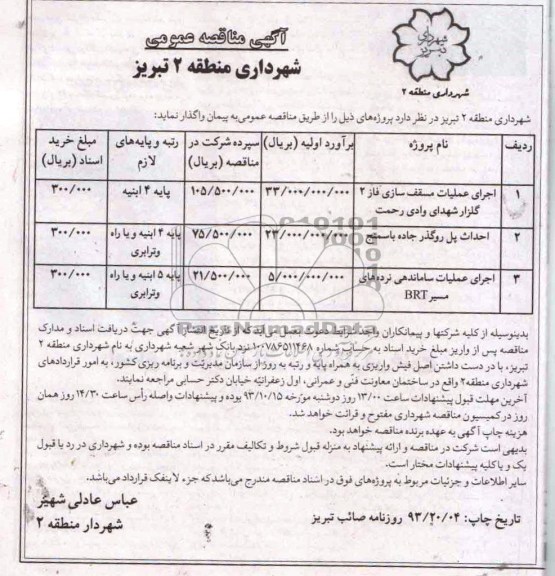 آگهی مناقصه عمومی
شهرداری منطقه ۲ تبریز
شهرداری تبریز
شهرداری منطقه ۲
شهرداری منطقه ۲ تبریز در نظر دارد پروژه‌های ذیل را از طریق مناقصه عمومی به پیمان واگذار نماید:
ردیف نام پروژه برآورد اولیه (بریال) سپرده شرکت در مناقصه (بریال) رتبه و پایه‌های لازم مبلغ خرید اسناد (بریال)
۱ اجرای عملیات مسقف سازی فاز ۲ گلزار شهدای وادی رحمت ۳۳/۰۰۰/۰۰۰/۰۰۰ ۱۰۵/۵۰۰/۰۰۰ پایه ۴ ابنیه ۳۰۰/۰۰۰
۲ احداث پل روگذر جاده باسمنج ۲۳/۰۰۰/۰۰۰/۰۰۰ ۷۵/۵۰۰/۰۰۰ پایه ۴ ابنیه و یا راه وترابری ۳۰۰/۰۰۰
۳ اجرای عملیات ساماندهی نرده‌های مسیر BRT ۵/۰۰۰/۰۰۰/۰۰۰ ۲۱/۵۰۰/۰۰۰ پایه ۵ ابنیه و یا راه وترابری ۳۰۰/۰۰۰
بدینوسیله از کلیه شرکتها و پیمانکاران واجد شرایط دعوت بعمل می‌آید که از تاریخ انتشار آگهی جهت دریافت اسناد و مدارک
مناقصه پس از واریز مبلغ خرید اسناد به حساب شماره ۱۰۰۷۸۶۵۱۱۴۶۸ نزد بانک شهر شعبه شهرداری به نام شهرداری منطقه ۲
تبریز، با در دست داشتن اصل فیش واریزی به همراه پایه و رتبه به روز از سازمان مدیریت و برنامه ریزی کشور، به امور قراردادهای
شهرداری منطقه۲ واقع در ساختمان معاونت فنی و عمرانی، اول زعفرانیه خیابان دکتر حسابی مراجعه نمایند.
آخرین مهلت قبول پیشنهادات ساعت ۱۳/۰۰ روز دوشنبه مورخه ۹۳/۱۰/۱۵ بوده و پیشنهادات واصله رأس ساعت ۱۴/۳۰ روز همان
روز در کمیسیون مناقصه شهرداری مفتوح و قرائت خواهد شد.
هزینه چاپ آگهی به عهده برنده مناقصه خواهد بود.
بدیهی است شرکت در مناقصه و ارائه پیشنهاد به منزله قبول شروط و تکالیف مقرر در اسناد مناقصه بوده و شهرداری در رد یا قبول
یک و یا کلیه پیشنهادات مختار است.
سایر اطلاعات و جزئیات مربوط به پروژه‌های فوق در اسناد مناقصه مندرج می‌باشد که جزء لاینفک قرارداد می‌باشد.
عباس عادلی شهیر
شهردار منطقه ۲
تاریخ چاپ: ۹۳/۲۰/۰۴ روزنامه صائب تبریز